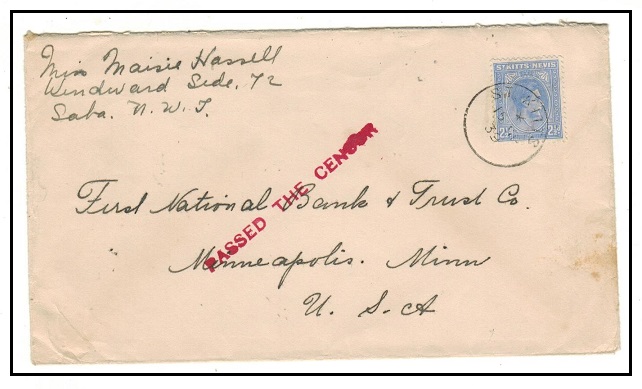 Miss Maisie Hassell
Windward Side, 72
Saba. N. W. I.
ST KITTS-NEVIS
2½
PASSED THE CENSOR
First National Bank & Trust Co.
Minneapolis. Minn
U. S. A